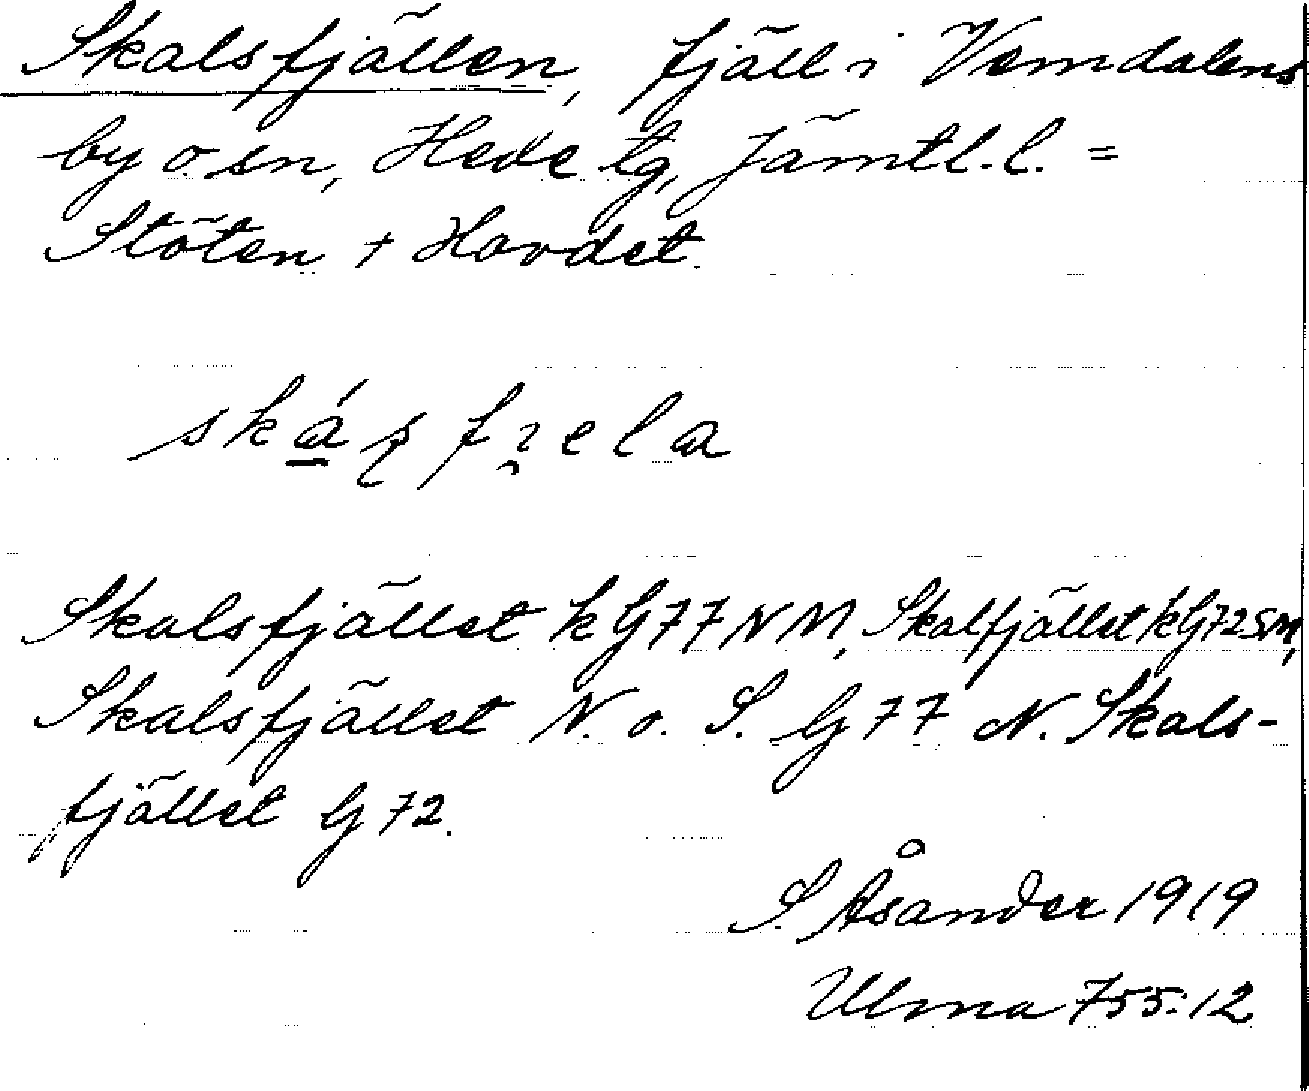 Skalsfjällen, fjäll i Vemdalens
by o. sn, Hede tg, Jämtl. l. =
Stöten + Hovdet
Skalsfjället k G77NM, Skalfjället k G72SM,
Skalsfjället N. o. S. G77 N. Skals-
fjället G72.
S. Åsander 1919
Ulma 755:12